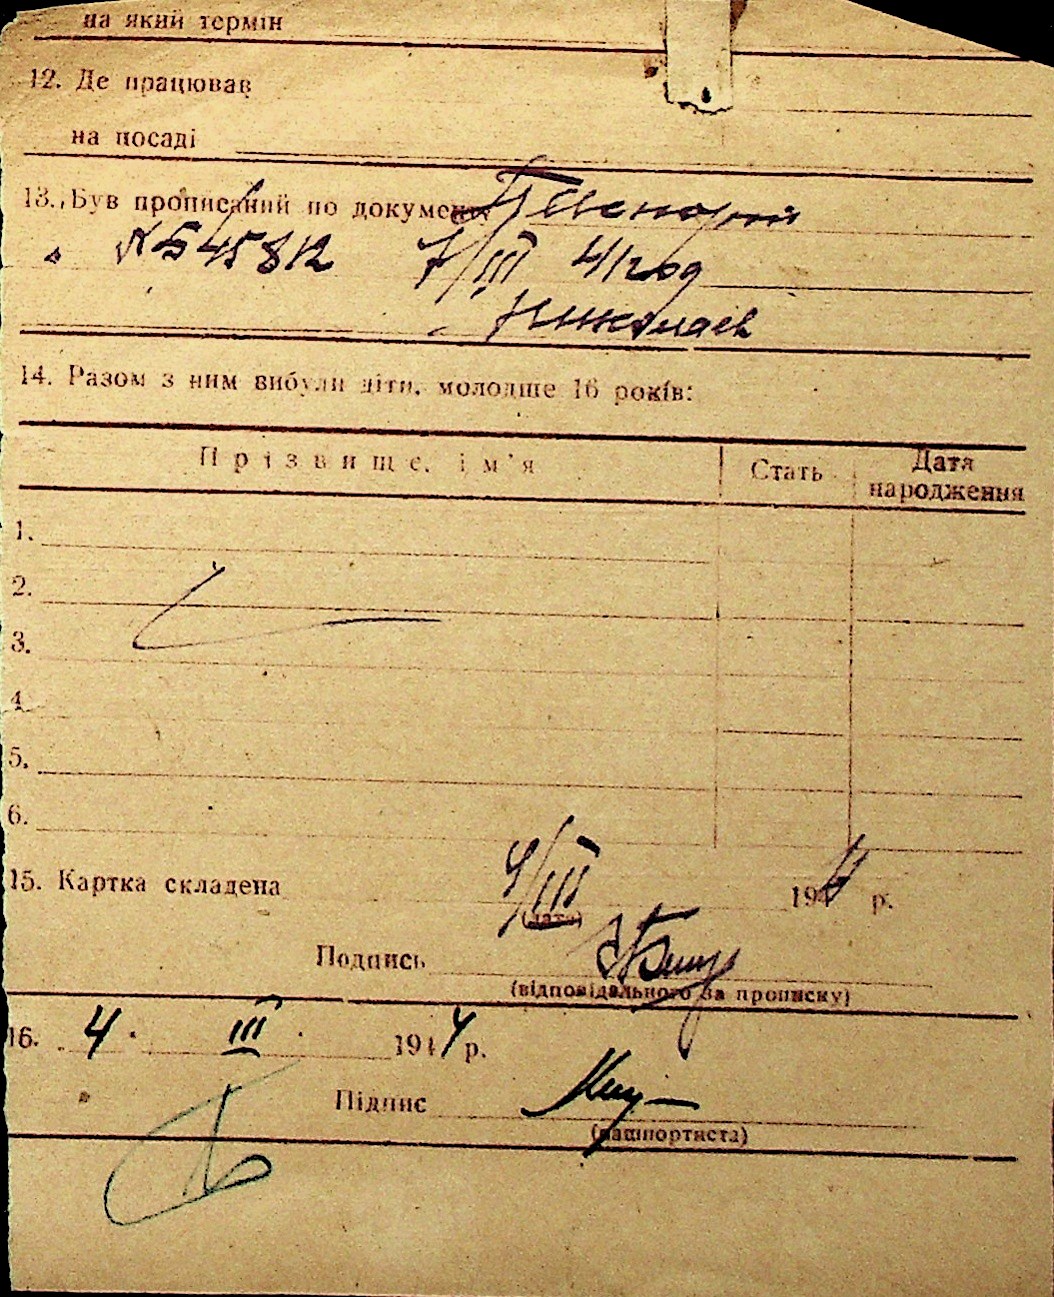 на який термін
12. Де працював
на посаді
13. Був прописаний по документу
№ 545812 7/III 41 год
Николаев
14. Разом з ним вибули діти, молодше 16 років:
Прізвище, ім'я Стать Дата народження
1.
2.
3.
4.
5.
6.
15. Картка складена 4/III 1944 р.
(дата)
Подпись
(відповідального за прописку)
16. 4. III. 1944 р.
Підпис
(пашпортиста)